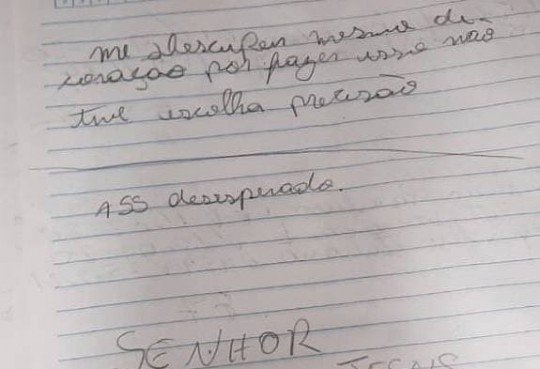 me desculpem mesmo de
coração por fazer isso não
tive escolha precisão
ASS desesperado.
SENHOR
JESUS